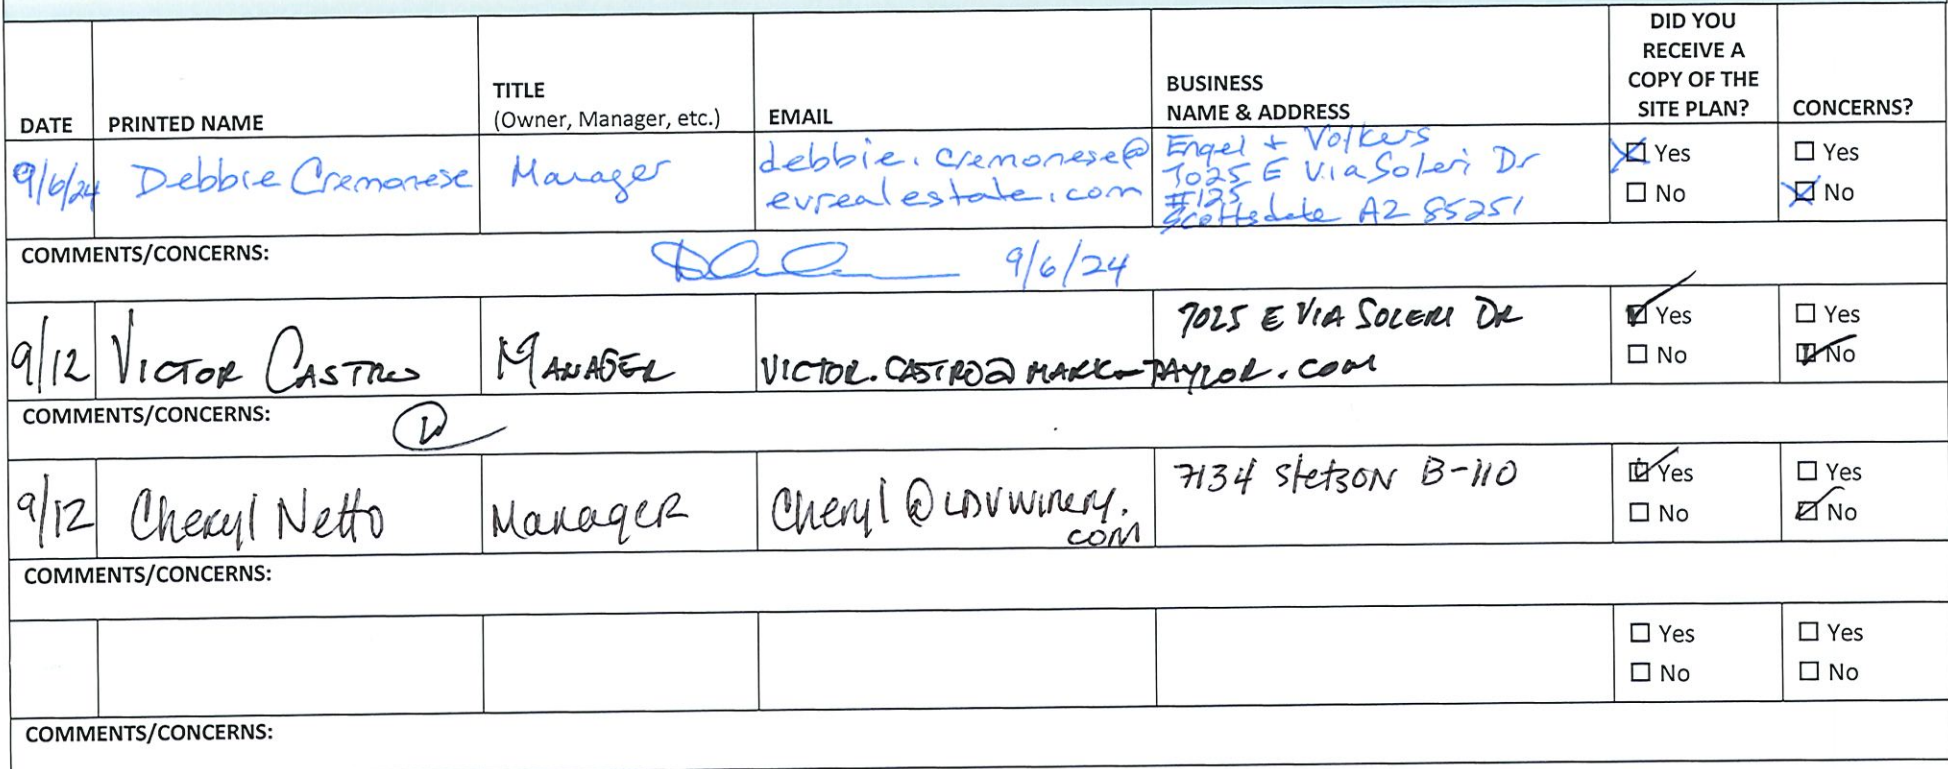 DATE PRINTED NAME TITLE (Owner, Manager, etc.) EMAIL BUSINESS NAME & ADDRESS DID YOU RECEIVE A COPY OF THE SITE PLAN? CONCERNS?
9/6/24 Debbie Cremonese Manager debbie.cremonese@
evrealestate.com
Engel + Volkers
7025 E Via Soleri Dr
#125
Scottsdale AZ 85251
☒ Yes ☐ Yes
☐ No ☒ No
COMMENTS/CONCERNS: 9/6/24
9/12 VICTOR CASTRO MANAGER VICTOR.CASTRO@MARK-TAYLOR.COM
7025 E VIA SOLERI DR
☑ Yes ☐ Yes
☐ No ☑ No
COMMENTS/CONCERNS:
9/12 Cheryl Netto Manager Cheryl@LDVwinery.
com
7134 Stetson B-110
☑ Yes ☐ Yes
☐ No ☑ No
COMMENTS/CONCERNS:
☐ Yes ☐ Yes
☐ No ☐ No
COMMENTS/CONCERNS: